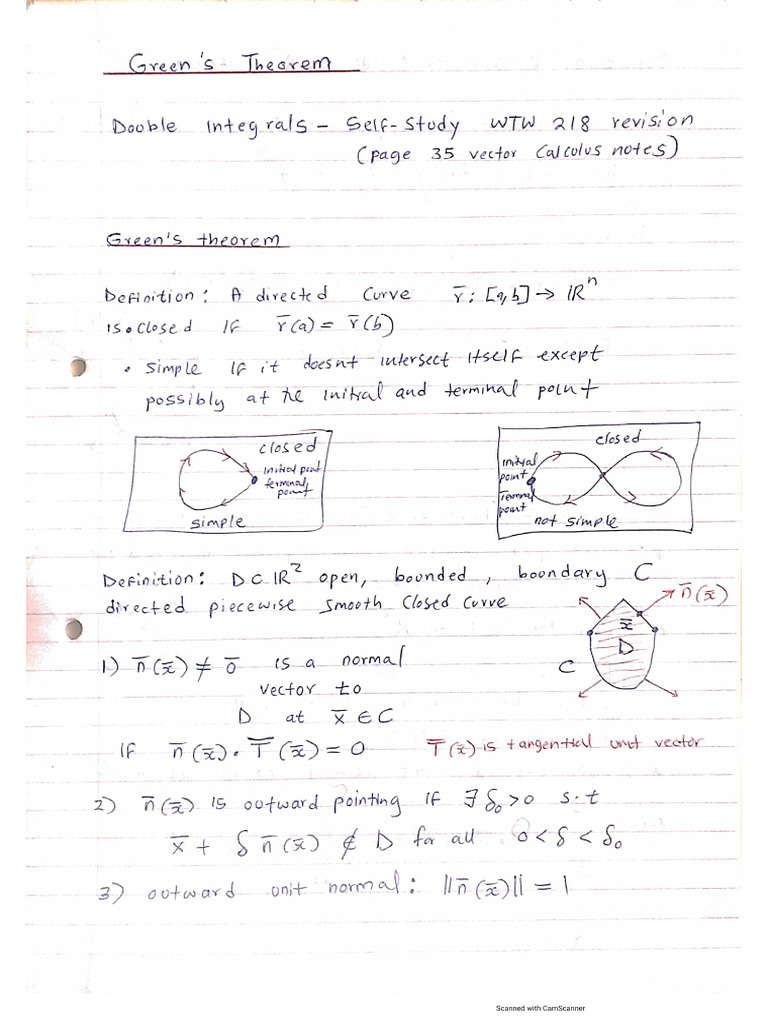 Green's Theorem
Double Integrals - Self-study WTW 218 revision
(page 35 vector Calculus notes)
Green's theorem
Definition: A directed curve r̅: [a,b] → ℝⁿ
is • closed if r̅(a) = r̅(b)
• simple if it doesnt intersect itself except
possibly at the initial and terminal point
closed
initial point
terminal
point
simple
closed
initial
point
Terminal
point
not simple
Definition: D ⊂ ℝ² open, bounded, boundary C
directed piecewise smooth closed curve
n̅(x̅)
x̅
D
C
1) n̅(x̅) ≠ 0̅ is a normal
vector to
D at x̅ ∈ C
If n̅(x̅) • T̅(x̅) = 0 T̅(x̅) is tangential unit vector
2) n̅(x̅) is outward pointing if ∃ δ₀ > 0 s.t
x̅ + δ n̅(x̅) ∉ D for all 0 < δ < δ₀
3) outward unit normal: ||n̅(x̅)|| = 1
Scanned with CamScanner